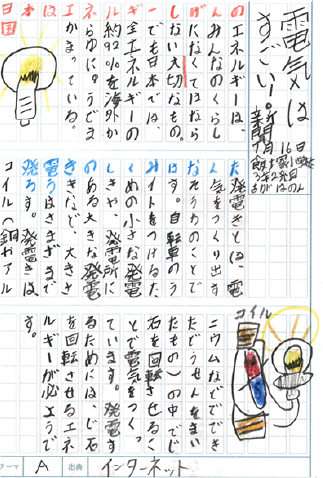 電気は
すごい！新聞
9月16日
日本はエネルギーしげんの
エネルギーは、
みんなのくらし
になくてはなら
ない大切なもの。
でも日本では、
全エネルギーの
約92%を海外か
らゆにゅうでま
かまっている。
発電きとは、電
気をつくり出す
そうちのことで
す。自転車のラ
イトをつけるた
めの小さな発電
きや、発電所に
ある大きな発電
きなど、大きさ
はさまざまで
す。発電きは
コイル(銅やアル
ニウムなどででき
たどうせんをまい
たもの)の中でじ
石を回転させるこ
とで電気をつくっ
ています。発電す
るためには、じ石
を回転させるエネ
ルギーが必ようで
す。
コイル
テーマ A 出典 インターネット